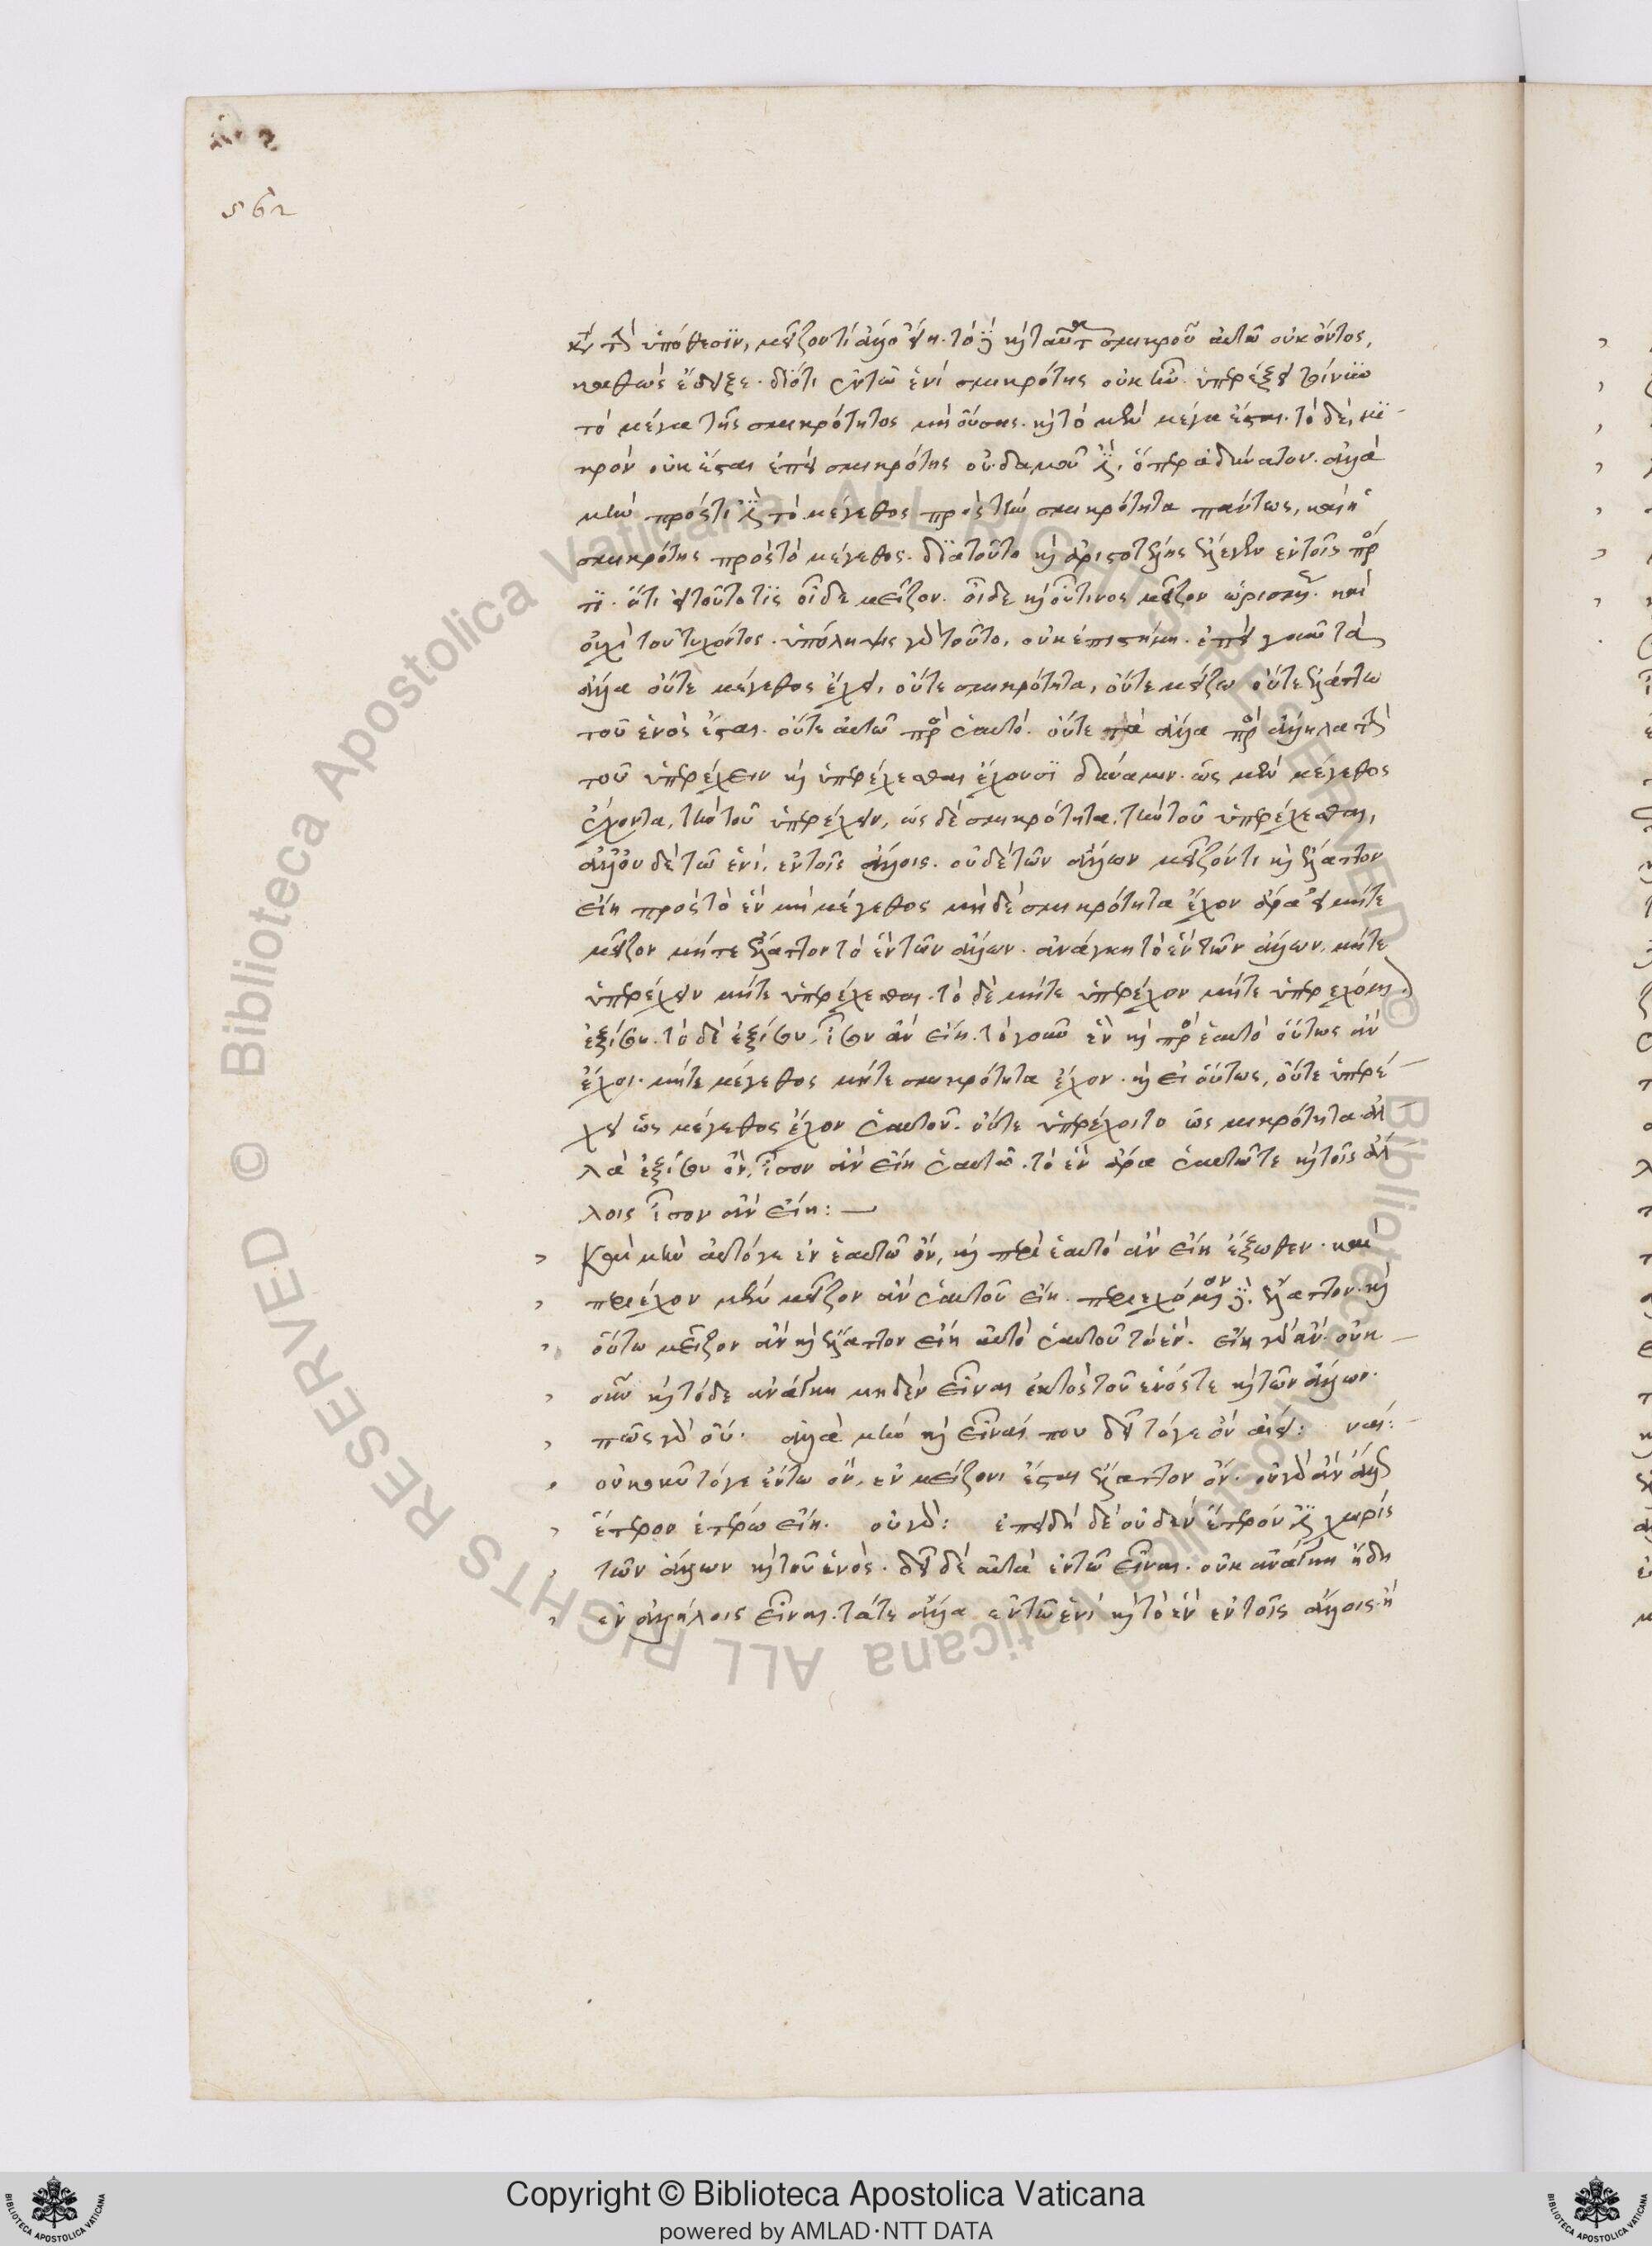 562
τὴν ὑπόθεσιν, μεῖζόν τι ἄλλο εἴη. τὸ δὲ καὶ ταῦτα σμικροῦ αὐτοῦ οὐκ ὄντος,
καθὼς ἔδειξε. διότι ἐν τῷ ἑνὶ σμικρότης οὐκ ἦν. ὑπερέξει
τὸ μέγα τῆς σμικρότητος μὴ οὔσης. καὶ τὸ μὲν μέγα ἔσται. τὸ δὲ, μι-
κρὸν οὐκ ἔσται ἐπεὶ σμικρότης οὐδαμοῦ ἐστι. ὅπερ ἀδύνατον. ἀλλὰ
μὴν πρός τί ἐστι τὸ μέγεθος πρὸς τὴν σμικρότητα πάντως, καὶ ἡ
σμικρότης πρὸς τὸ μέγεθος. διὰ τοῦτο καὶ ἀριστοτέλης ἔλεγεν ἐν τοῖς πρός
τι. ὅτι εἰ τοῦτό τις οἶδε μεῖζον. οἶδε καὶ οὗτινος μεῖζον ὡρισμένως. καὶ
οὐχὶ τοῦ τυχόντος. ὑπόληψις γὰρ τοῦτο, οὐκ ἐπιστήμη. ἐπεὶ γοῦν τὰ
ἄλλα οὔτε μέγεθος ἔχει, οὔτε σμικρότητα, οὔτε μείζω οὔτε ἐλάττω
τοῦ ἑνὸς ἔσται. οὔτε αὐτῷ πρὸς ἑαυτό. οὔτε τὰ ἄλλα πρὸς ἄλληλα τὴν
τοῦ ὑπερέχειν καὶ ὑπερέχεσθαι ἔχουσι δύναμιν. ὡς μὲν μέγεθος
ἔχοντα, τὴν τοῦ ὑπερέχειν, ὡς δὲ σμικρότητα, τὴν τοῦ ὑπερέχεσθαι,
ἀλλ' οὐδὲ τῷ ἑνὶ, ἐν τοῖς ἄλλοις. οὐδὲ τῶν ἄλλων μεῖζόν τι καὶ ἔλαττον
εἴη πρὸς τὸ ἓν μὴ μέγεθος μηδὲ σμικρότητα ἔχον ἆρα εἰ μήτε
μεῖζον μήτε ἔλαττον τὸ ἓν τῶν ἄλλων. ἀνάγκη τὸ ἓν τῶν ἄλλων, μήτε
ὑπερέχειν μήτε ὑπερέχεσθαι. τὸ δὲ μήτε ὑπερέχον μήτε ὑπερεχόμενον
ἐξίσου. τὸ δὲ ἐξίσου, ἴσον ἂν εἴη. τὸ γοῦν ἓν καὶ πρὸς ἑαυτὸ οὕτως ἂν
ἔχοι. μήτε μέγεθος μήτε σμικρότητα ἔχον. καὶ εἰ οὕτως, οὔτε ὑπερέ-
χει ὡς μέγεθος ἔχον ἑαυτοῦ. οὔτε ὑπερέχοιτο ὡς μικρότητα ἀλ
λὰ ἐξίσου ὂν, ἴσον ἂν εἴη ἑαυτῷ. τὸ ἓν ἄρα ἑαυτῷ τε καὶ τοῖς ἄλ
λοις ἴσον ἂν εἴη:—
Καὶ μὴν αὐτό γε ἐν ἑαυτῷ ὂν, καὶ περὶ ἑαυτὸ ἂν εἴη ἔξωθεν. καὶ
περιέχον μὲν μεῖζον ἂν ἑαυτοῦ εἴη. περιεχόμενον δὲ, ἔλαττον. καὶ
οὕτω μεῖζον ἂν καὶ ἔλαττον εἴη αὐτὸ ἑαυτοῦ τὸ ἕν. εἴη γὰρ ἄν. οὐκ-
οῦν καὶ τόδε ἀνάγκη μηδὲν εἶναι ἐκτὸς τοῦ ἑνός τε καὶ τῶν ἄλλων.
πῶς γὰρ οὔ. ἀλλὰ μὴν καὶ εἶναί που δεῖ τό γε ὂν ἀεί: ναί:
οὐκοῦν τό γε ἔν τῳ ὂν, ἐν μείζονι ἔσται ἔλαττον ὄν. οὐ γὰρ ἂν ἄλλως
ἕτερον ἑτέρῳ εἴη. οὐ γάρ: ἐπειδὴ δὲ οὐδὲν ἕτερόν ἐστι χωρὶς
τῶν ἄλλων καὶ τοῦ ἑνός. δεῖ δὲ αὐτὰ ἔν τῳ εἶναι. οὐκ ἀνάγκη ἤδη
ἐν ἀλλήλοις εἶναι. τά τε ἄλλα ἐν τῷ ἑνὶ καὶ τὸ ἓν ἐν τοῖς ἄλλοις. ἢ
Copyright © Biblioteca Apostolica Vaticana
powered by AMLAD·NTT DATA